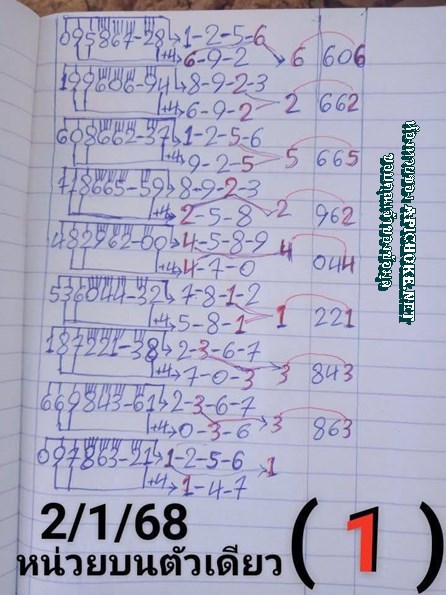 095867-28 1-2-5-6
+4 6-9-2 6 606
199606-94 8-9-2-3
+4 6-9-2 2 662
608662-37 1-2-5-6
+4 9-2-5 5 665
718665-59 8-9-2-3
+4 2-5-8 2 962
482962-00 4-5-8-9
+4 4-7-0 4 044
536044-32 7-8-1-2
+4 5-8-1 1 221
187221-38 2-3-6-7
+4 7-0-3 3 843
669843-61 2-3-6-7
+4 0-3-6 3 863
097863-21 1-2-5-6
+4 1-4-7 1
2/1/68
หน่วยบนตัวเดียว (1)
APICHOKE.NET